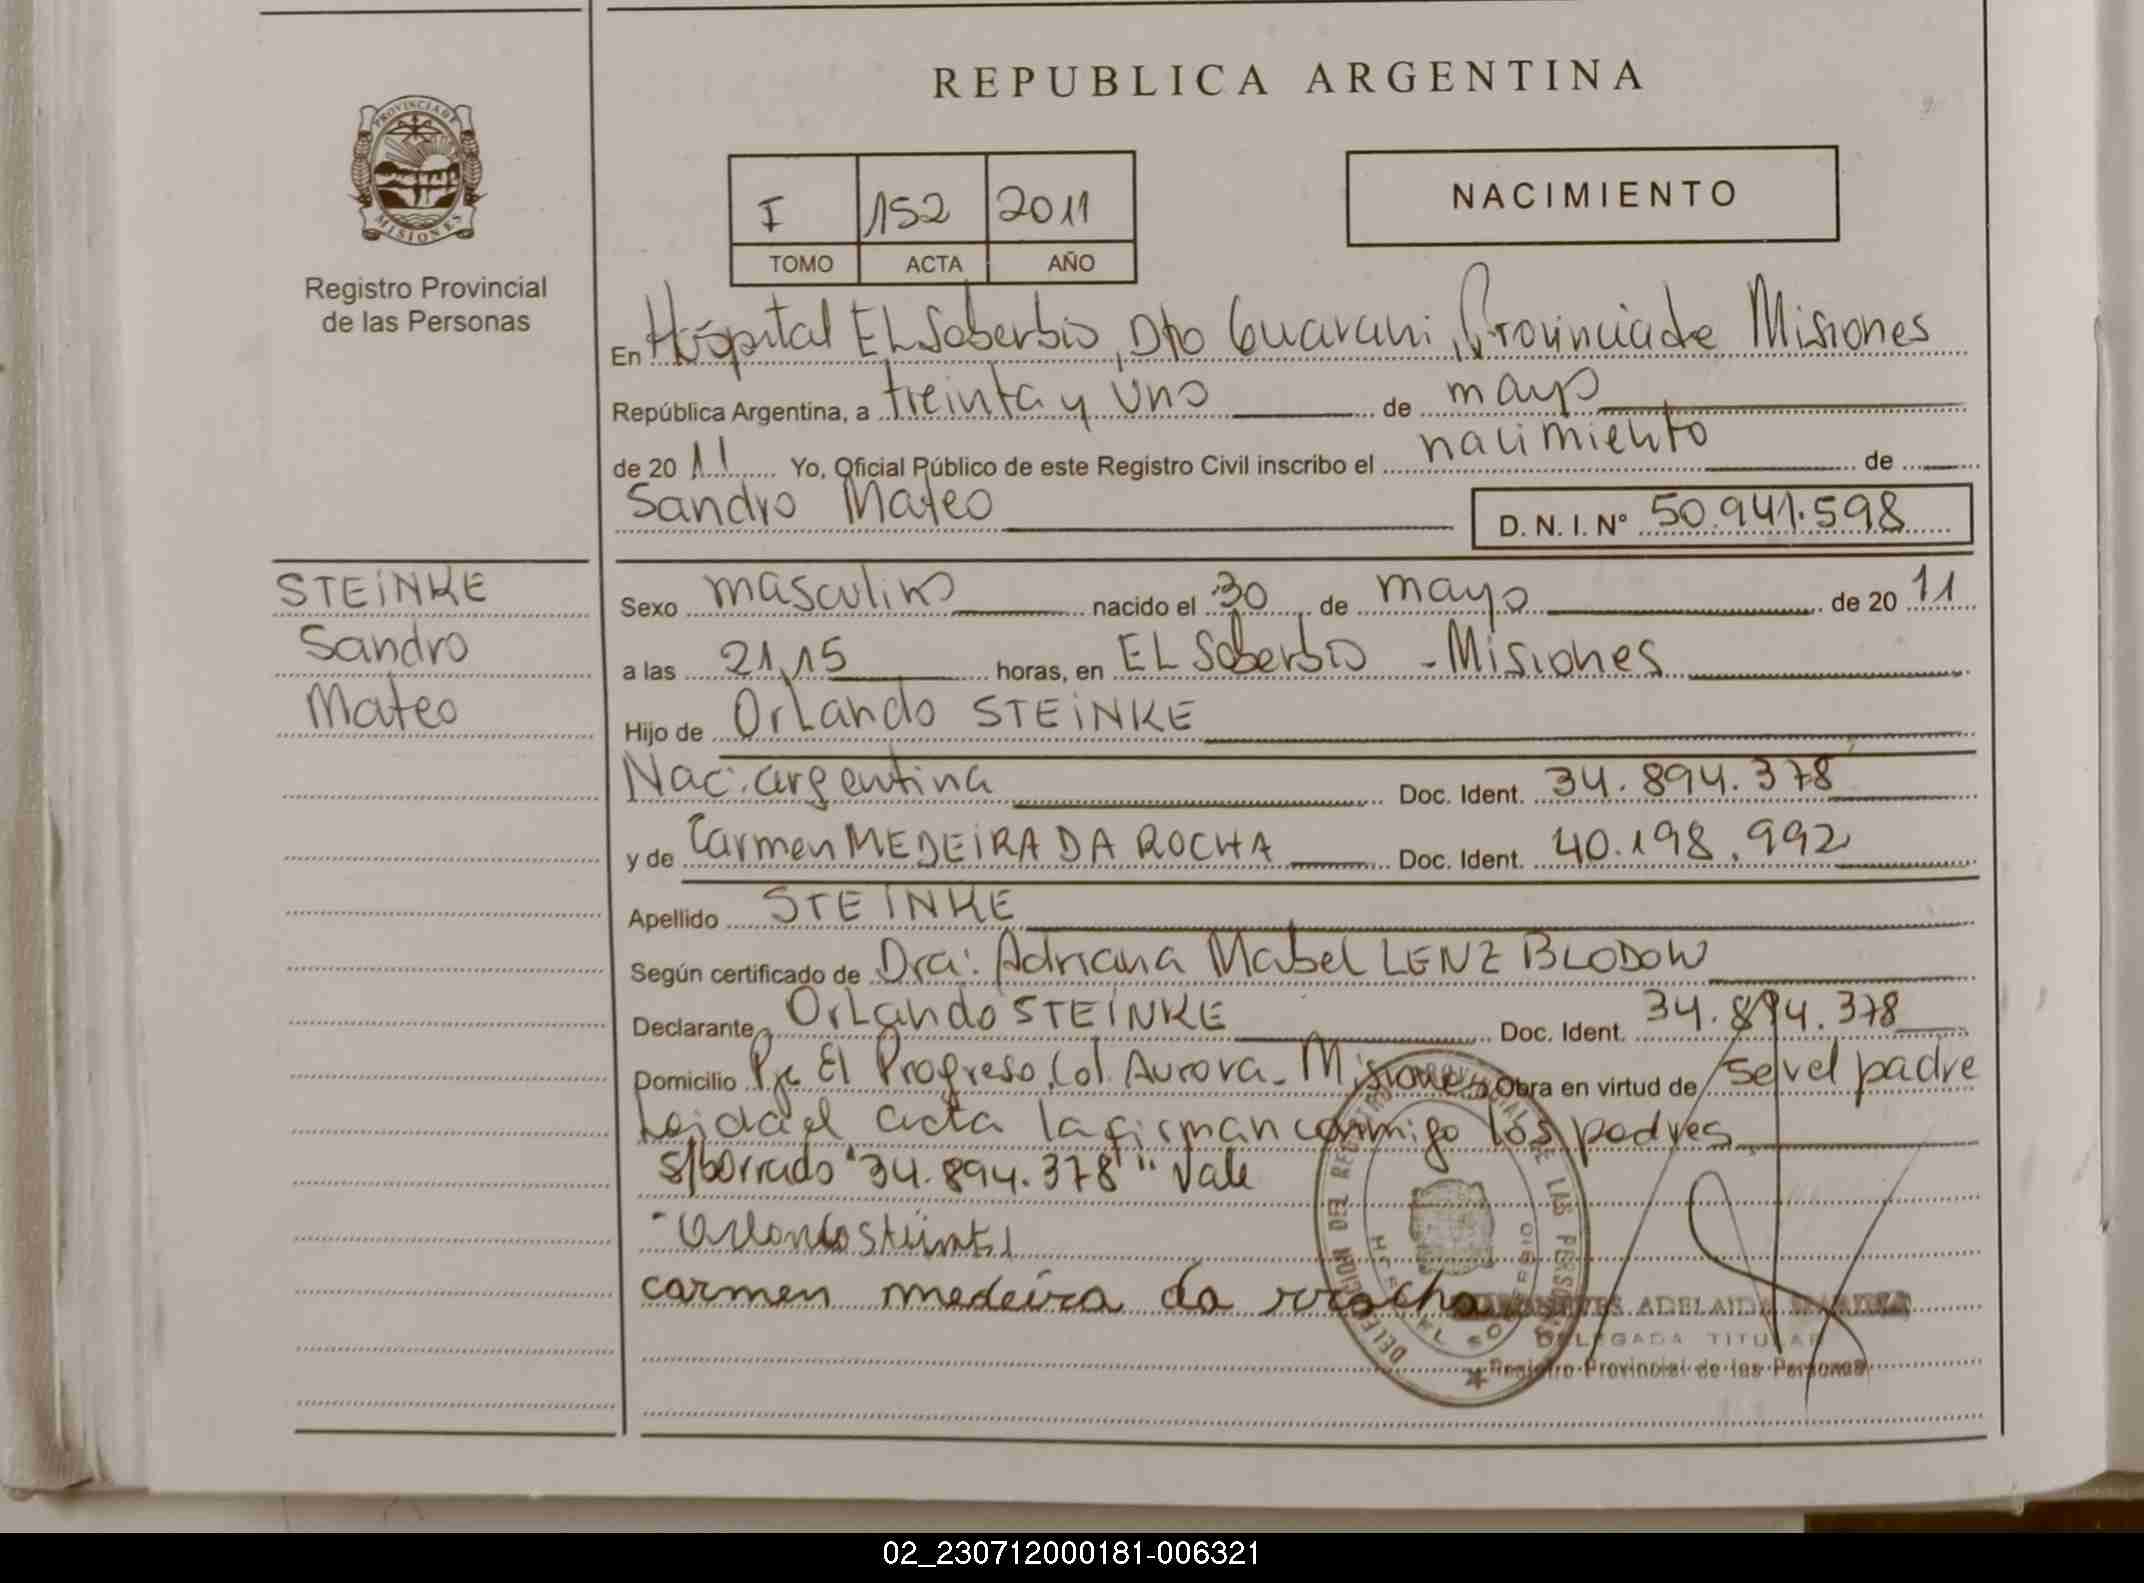 REPUBLICA ARGENTINA
PROVINCIA DE
MISIONES
Registro Provincial
de las Personas
I 152 2011
TOMO ACTA AÑO
NACIMIENTO
En Hospital EL Soberbio, Dto Guarani, Provincia de Misiones
República Argentina, a treinta y uno de mayo
de 2011 Yo, Oficial Público de este Registro Civil inscribo el nacimiento de
Sandro Mateo D. N. I. Nº 50.941.598
STEINKE
Sandro
Mateo
Sexo masculino nacido el 30 de mayo de 2011
a las 21,15 horas, en EL Soberbio - Misiones
Hijo de Orlando STEINKE
Nac: argentina Doc. Ident. 34.894.378
y de Carmen MEDEIRA DA ROCHA Doc. Ident. 40.198.992
Apellido STEINKE
Según certificado de Dra: Adriana Mabel LENZ BLODOW
Declarante Orlando STEINKE Doc. Ident. 34.894.378
Domicilio Pje El Progreso, Col. Aurora - Misiones Obra en virtud de ser el padre
Leida el acta la firman conmigo los padres
s/borrado "34.894.378" Vale
carmen medeira da rrocha
ADELAIDA
DELEGADA TITULAR
Registro Provincial de las Personas
DELEGACION DEL REGISTRO PROVINCIAL DE LAS PERSONAS
EL SOBERBIO
02_230712000181-006321